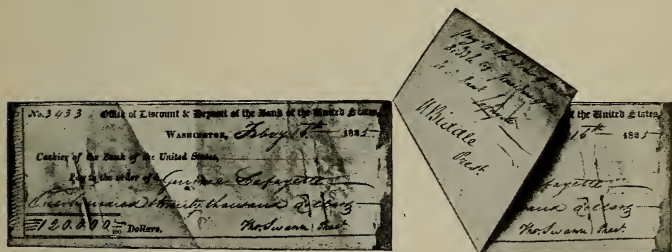 No. 3433 Office of Discount & Deposit of the Bank of the United States,
Washington, Feby 16th 1825
Cashier of the Bank of the United States,
Pay to the order of General Lafayette
One hundred & twenty thousand Dollars
$120.000 Dollars. Tho. Swann: Prest.
pay to the
Biddle
Lafayette
N Biddle
Prest.
of the United States,
16th 1825
fayette
sand Dollars
Tho. Swann: Prest.